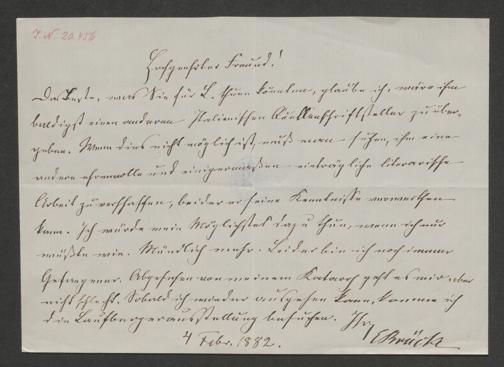 I. N. 20.456
Hochgeehrter Freund!
Das Beste, was Sie für L. thun könnten, glaube ich, wäre ihm
baldigst einen anderen Italienischen Quellenschriftsteller zu über-
geben. Wenn dies nicht möglich ist, muß man suchen, ihm eine
andere ehrenvolle und einigermaßen einträgliche literarische
Arbeit zu verschaffen, bei der er seine Kenntnisse verwerthen
kann. Ich würde mein Möglichstes dazu thun, wenn ich nur
wüßte wie. Mündlich mehr. Leider bin ich noch immer
Gefangener. Abgesehen von meinem Katarrh geht es mir aber
nicht schlecht. Sobald ich wieder ausgehen kann, komme ich
die Laufbergerausstellung besuchen. Ihr
4 Febr. 1882. EBrücke